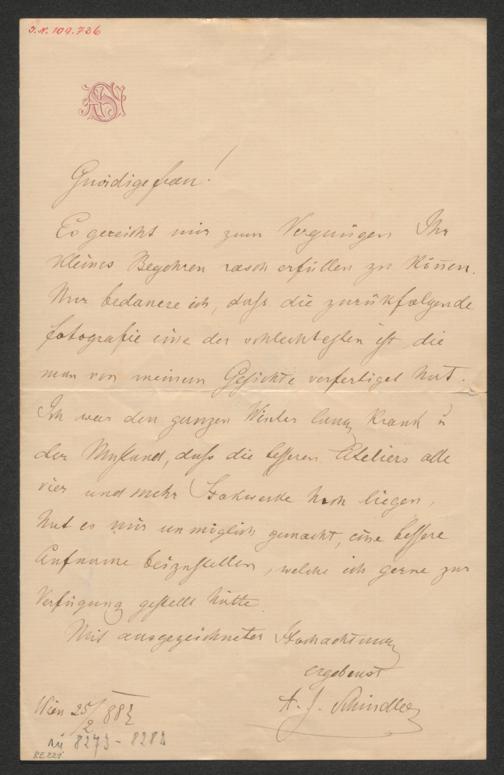 I.N. 109.736
AS
Gnädige frau!
Es gereicht mir zum Vergnügen Ihr
kleines Begehren rasch erfüllen zu können.
Nur bedauere ich, daß die zurükfolgende
fotografie eine der schlechtesten ist die
man von meinem Gesichte verfertiget hat.
Ich war den ganzen Winter lang krank u
der Umstand, daß die besseren Ateliers alle
vier und mehr Stokwerke hoch liegen,
hat es mir unmöglich gemacht, eine bessere
Aufname beizustellen, welche ich gerne zur
Verfügung gestellt hätte.
Mit ausgezeichneter Hochachtung
ergebenst
A. J. Schindler
Wien 25/2 88
8273 - 8283